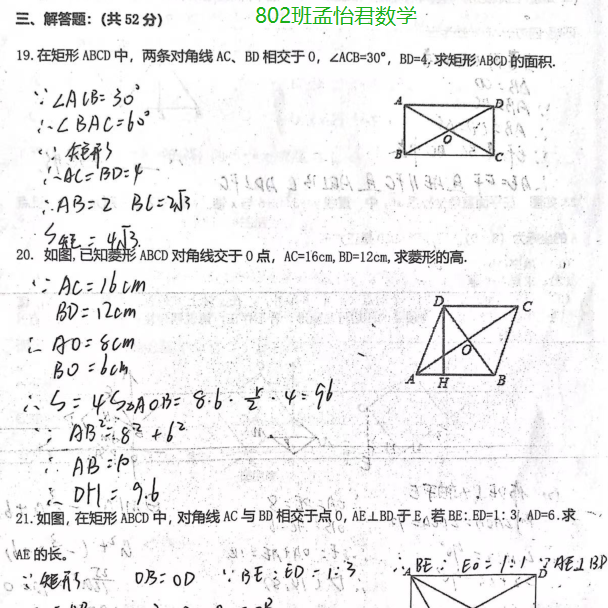 802班孟怡君数学
三、解答题：(共 52 分)
19.在矩形 ABCD 中，两条对角线 AC、BD 相交于 O，∠ACB=30°，BD=4,求矩形 ABCD 的面积.
∵∠ACB=30°
∴∠BAC=60°
∵矩形
∴AC=BD=4
∴AB=2 BC=2√3
S矩=4√3
A D
O
B C
20. 如图,已知菱形 ABCD 对角线交于 O 点，AC=16cm,BD=12cm,求菱形的高.
∵AC=16cm
BD=12cm
∴AO=8cm
BO=6cm
∴S=4S△AOB=8·6·½·4=96
∵AB²=8²+6²
∴AB=10
∴DH=9.6
D C
O
A H B
21.如图,在矩形 ABCD 中,对角线 AC 与 BD 相交于点 O,AE⊥BD 于 E,若 BE：ED=1：3,AD=6.求
AE 的长。
∵矩形 OB=OD ∵BE：ED=1:3 ∴BE：EO=1:1 ∵AE⊥BD
A D